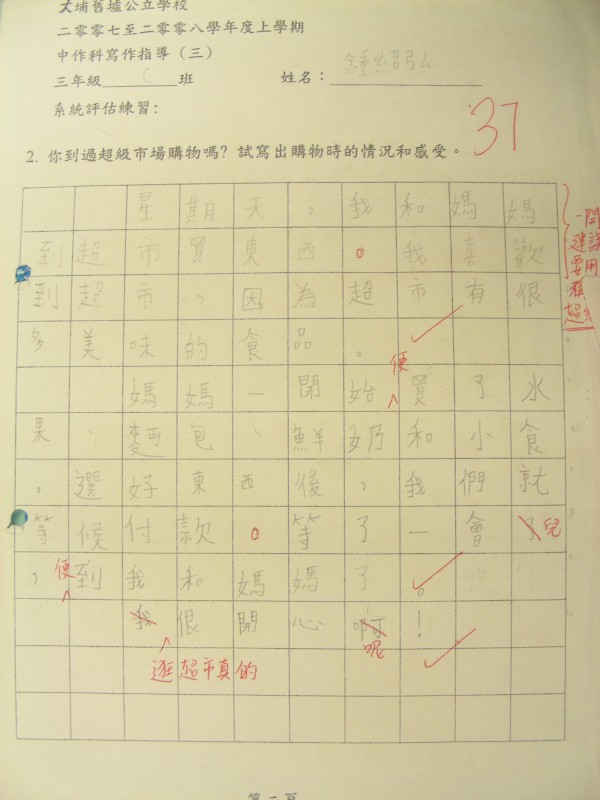 大埔舊墟公立學校
二零零七至二零零八學年度上學期
中作科寫作指導(三)
三年級 C 班 姓名:鍾紹弘
系統評估練習:
37
2. 你到過超級市場購物嗎?試寫出購物時的情況和感受。
星期天,我和媽媽
到超市買東西。我喜歡
到超市,因為超市有很
多美味的食品。
便
媽媽一開始買了水
果、麵包、鮮奶和小食
,選好東西後,我們就
等候付款。等了一會了兒
便
,到我和媽媽了。
我很開心啊!
逛超市真的 呢
第二頁